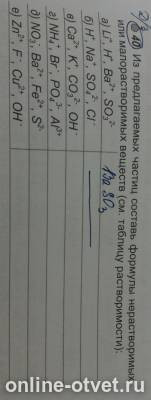 Из предлагаемых частиц составь формулы нерастворимых
или малорастворимых веществ (см. таблицу растворимости):
а) Li⁺, H⁺, Ba²⁺, SO₃²⁻ BaSO₃
б) H⁺, Na⁺, SO₄²⁻, Cl⁻
в) Ca²⁺, K⁺, CO₃²⁻, OH⁻
г) NH₄⁺, Br⁻, PO₄³⁻, Al³⁺
д) NO₃⁻, Ba²⁺, Fe²⁺, S²⁻
е) Zn²⁺, F⁻, Cu²⁺, OH⁻
online-otvet.ru